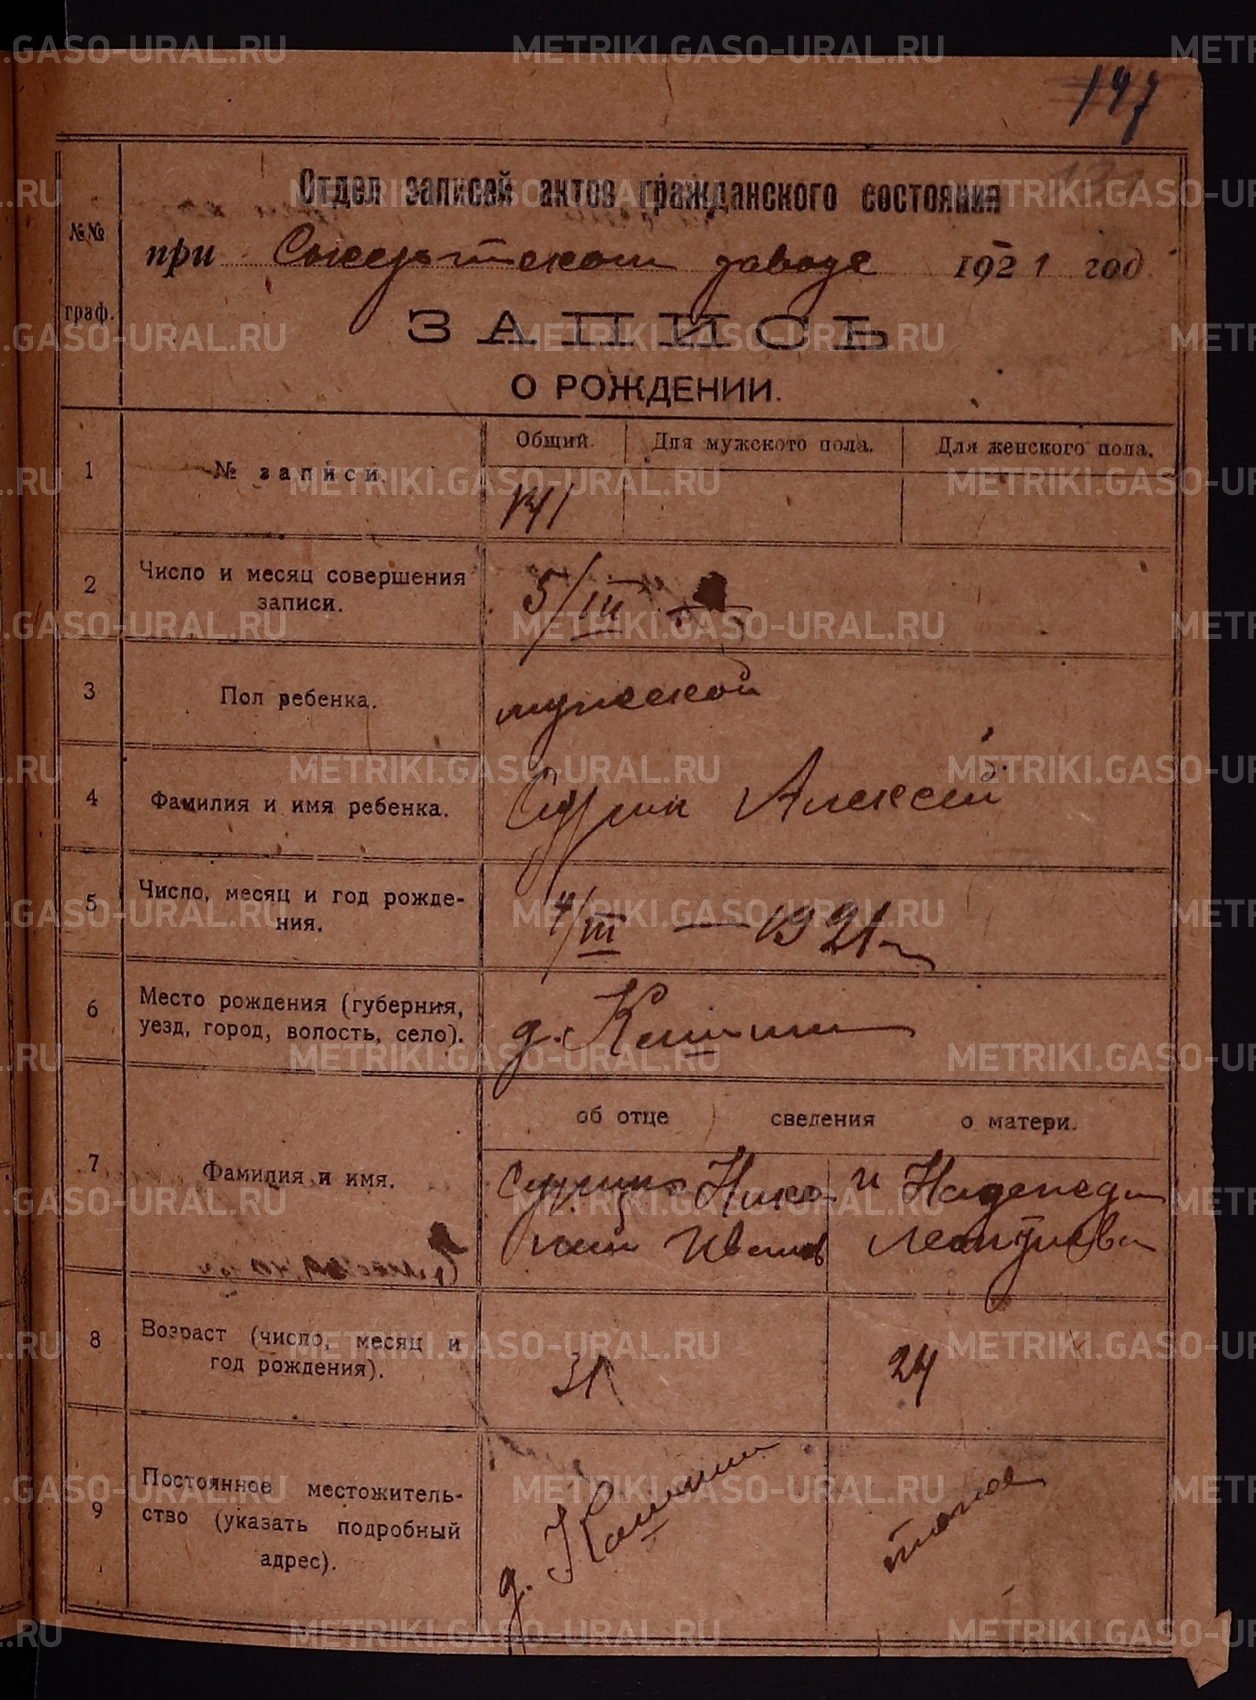 METRIKI.GASO-URAL.RU
197
Отдел записей актов гражданского состояния
№№
граф.
при Сысертском заводе 1921 год
ЗАПИСЬ
О РОЖДЕНИИ.
1 № записи. Общий. Для мужского пола. Для женского пола.
141
2 Число и месяц совершения
записи.
5/III
3 Пол ребенка. мужской
4 Фамилия и имя ребенка. Сурин Алексей
5 Число, месяц и год рожде-
ния.
4/III — 1921
6 Место рождения (губерния,
уезд, город, волость, село).
д. Кашина
об отце сведения о матери.
7 Фамилия и имя.
Сурин Нико и Надежда
лай Иванов Леонтиева
8 Возраст (число, месяц и
год рождения).
31 24
9 Постоянное местожитель-
ство (указать подробный
адрес).
д. Кашина